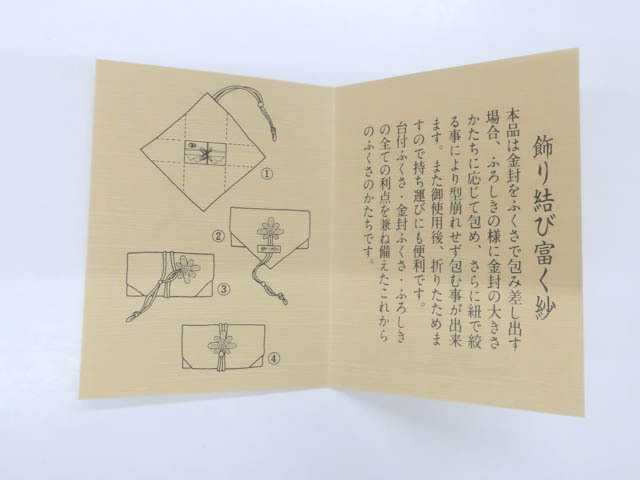 飾り結び富く紗
本品は金封をふくさで包み差し出す
場合、ふろしきの様に金封の大きさ
かたちに応じて包め、さらに紐で絞
る事により型崩れせず包む事が出来
ます。また御使用後、折りたためま
すので持ち運びにも便利です。
台付ふくさ・金封ふくさ・ふろしき
の全ての利点を兼ね備えたこれから
のふくさのかたちです。
①
②
③
④